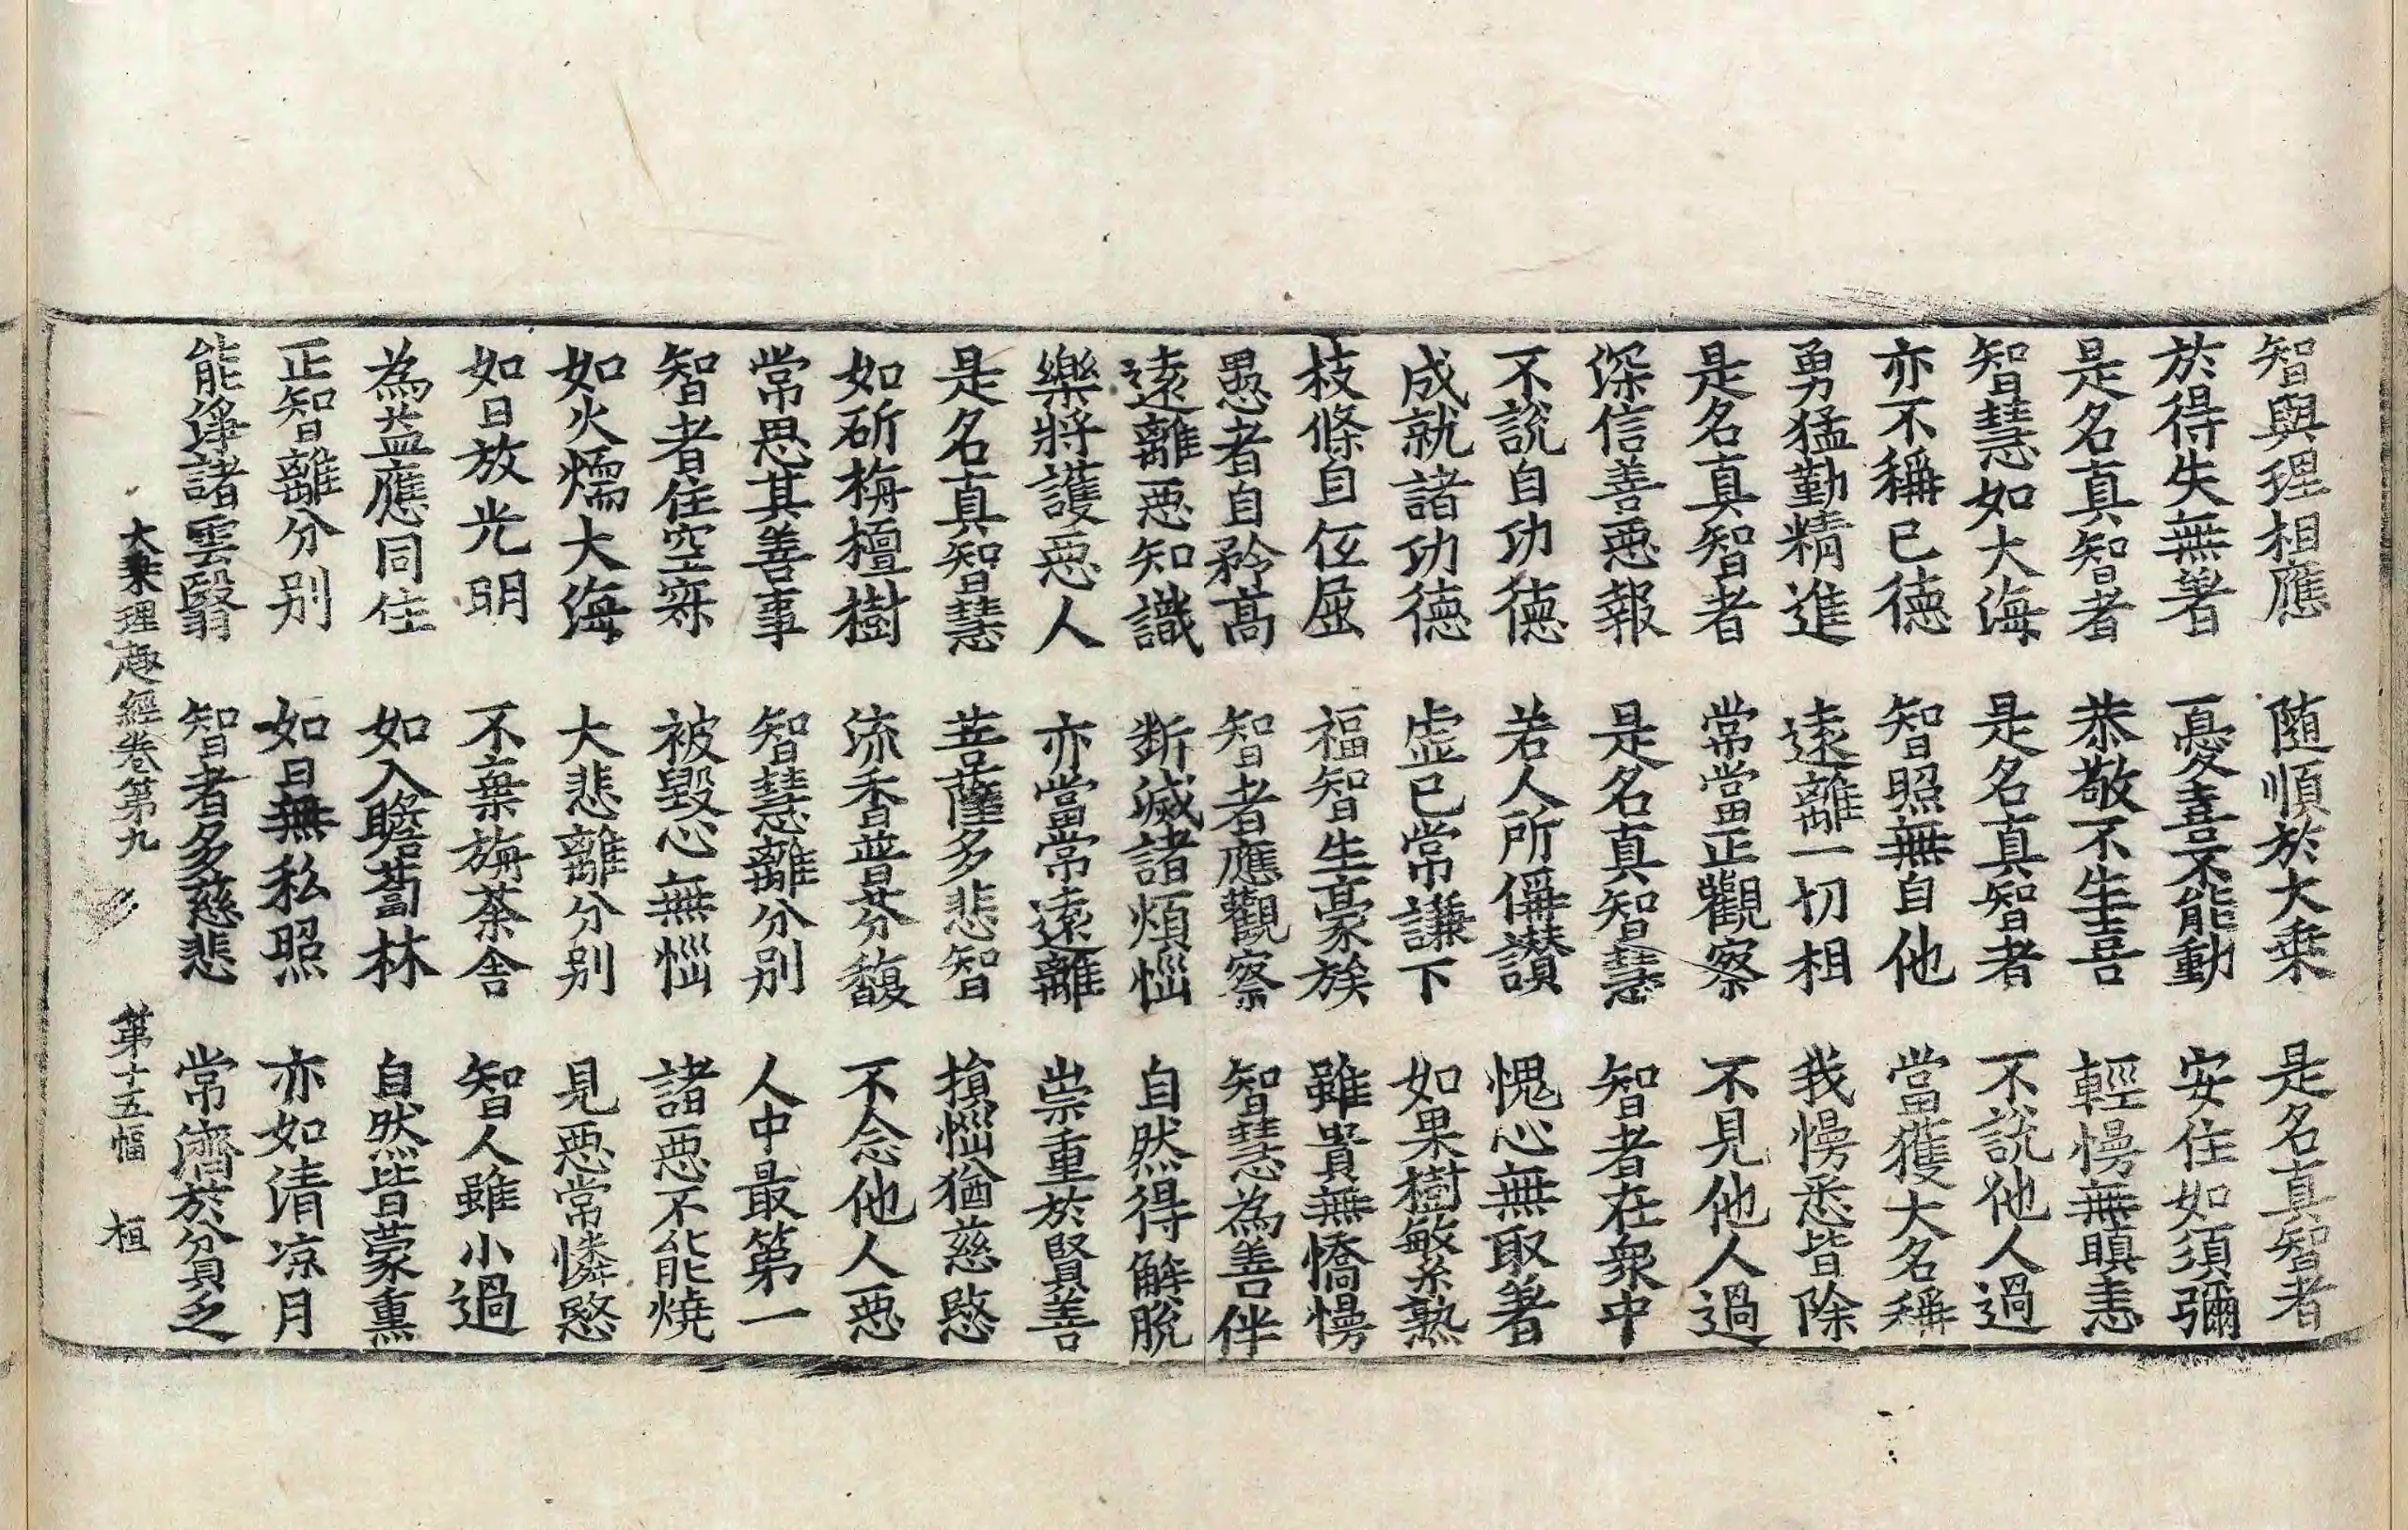 智與理相應　隨順於大乗　是名真智者
於得失無著　憂喜不能動　安住如須彌
是名真智者　恭敬不生喜　輕慢無瞋恚
智慧如大海　是名真智者　不說他人過
亦不稱已德　智照無自他　當獲大名稱
勇猛勤精進　遠離一切相　我慢悉皆除
是名真智者　常當正觀察　不見他人過
深信善惡報　是名真智慧　智者在衆中
不說自功德　若人所偁讃　愧心無取著
成就諸功德　虚已常謙下　如果樹繁熟
枝條自伍屈　福智生豪族　雖貴無憍慢
愚者自矜髙　智者應觀察　智慧為善伴
遠離惡知識　斷滅諸煩惱　自然得解脫
樂將護惡人　亦當常遠離　崇重於賢善
是名真智慧　菩薩多悲智　損惱猶慈愍
如斫栴檀樹　流香普芬馥　不念他人惡
常思其善事　智慧離分别　人中最第一
智者住空寂　被毀心無惱　諸惡不能燒
如火燸大海　大悲離分别　見惡常憐愍
如日放光明　不棄旃荼舍　智人雖小過
為益應同住　如入瞻蔔林　自然皆蒙熏
正智離分别　如日無私照　亦如清凉月
能淨諸雲翳　智者多慈悲　常濟於貧乏
大乗理趣經卷第九　第十五幅　桓